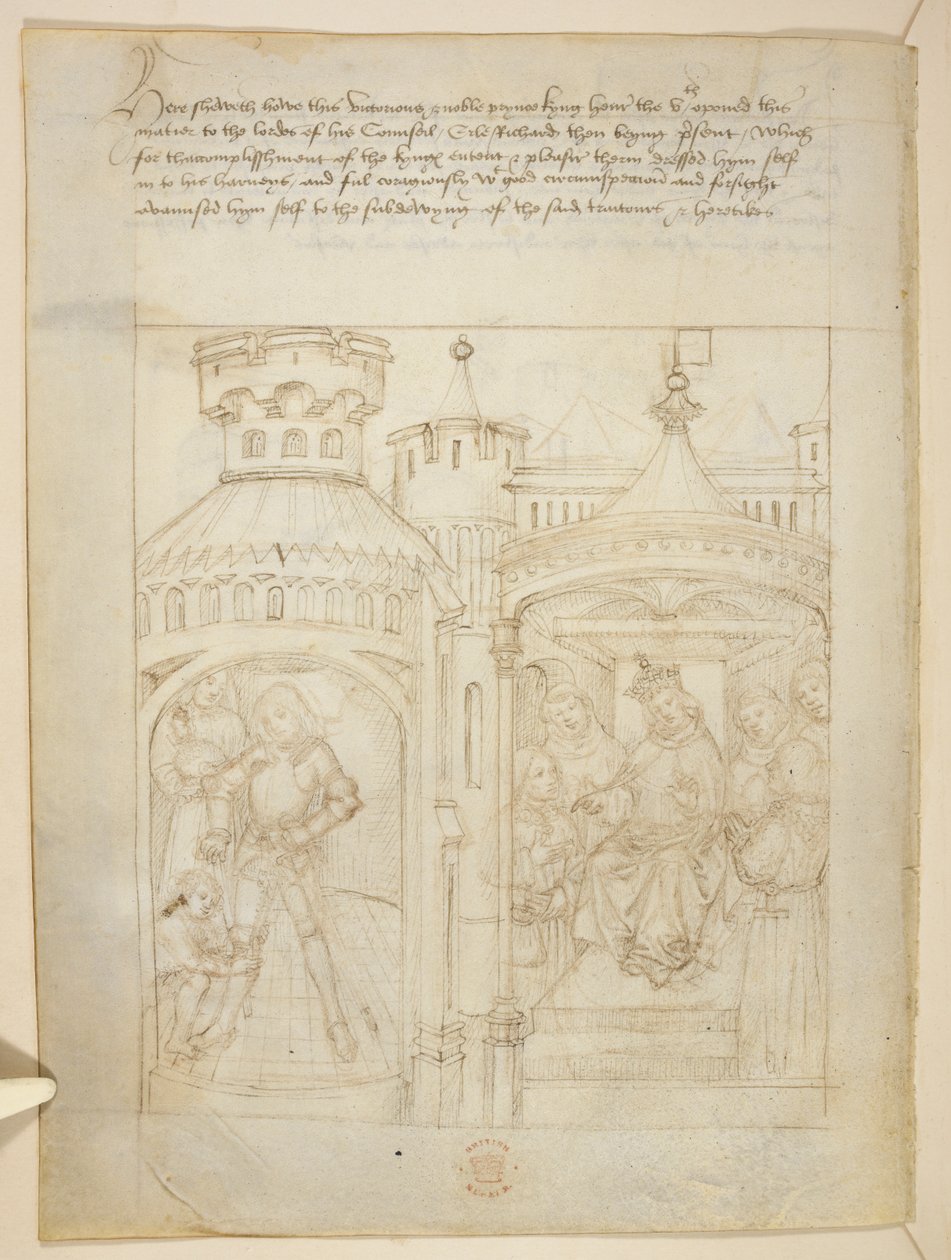 Here sheweth howe this victorious & noble prynce kyng Henr' the vth opened this
matier to the lordes of his Counseil / Erle Richard then beyng p'sent / which
for thaccomplisshment of the kyng entent & pleasir therin dressed hym self
in to his harneys / and ful coragiously wt good circumspeccion and forsight
avaunsed hym self to the subdewyng of the said traitours & heretikes
BRITISH